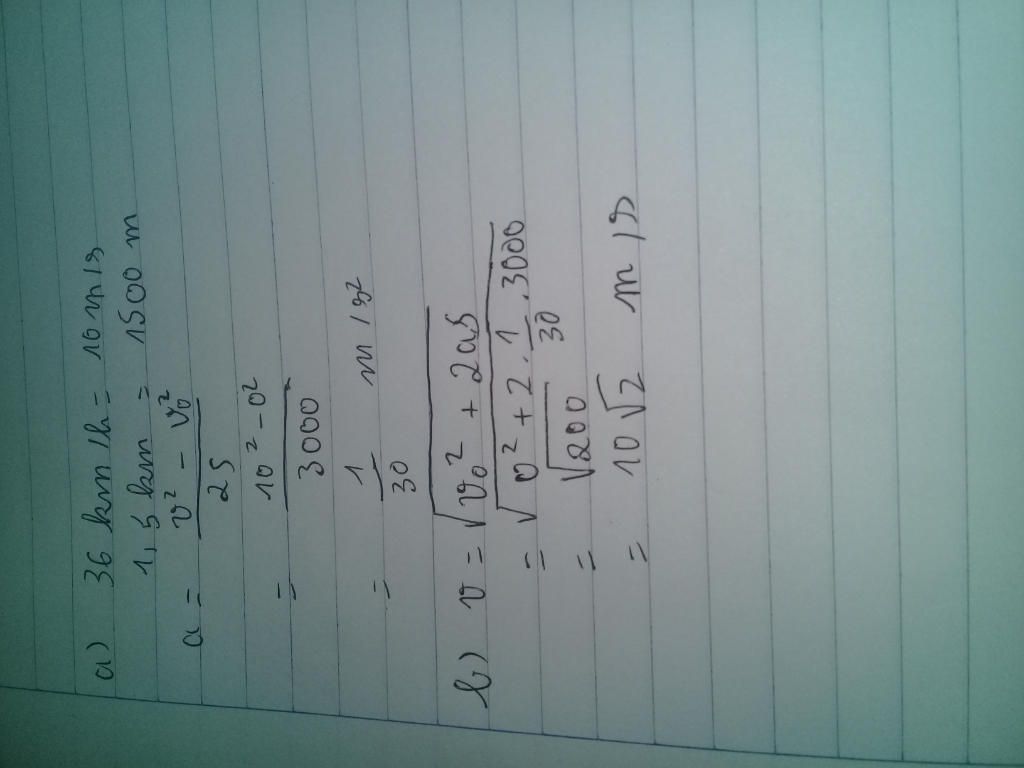 a) 36 km/h = 10 m/s
1,5 km = 1500 m
a = (v² - v₀²) / 2S
= (10² - 0²) / 3000
= 1/30 m/s²
b) v = √(v₀² + 2aS)
= √(0² + 2 . 1/30 . 3000)
= √200
= 10√2 m/s